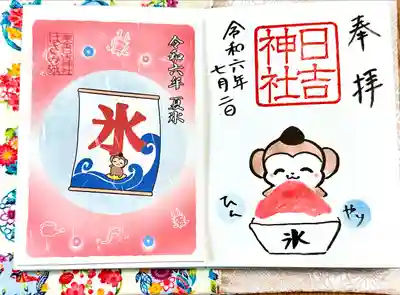 奉拝
日吉神社
令和六年
七月二日
ひん
やり
氷
令和六年 夏氷
氷